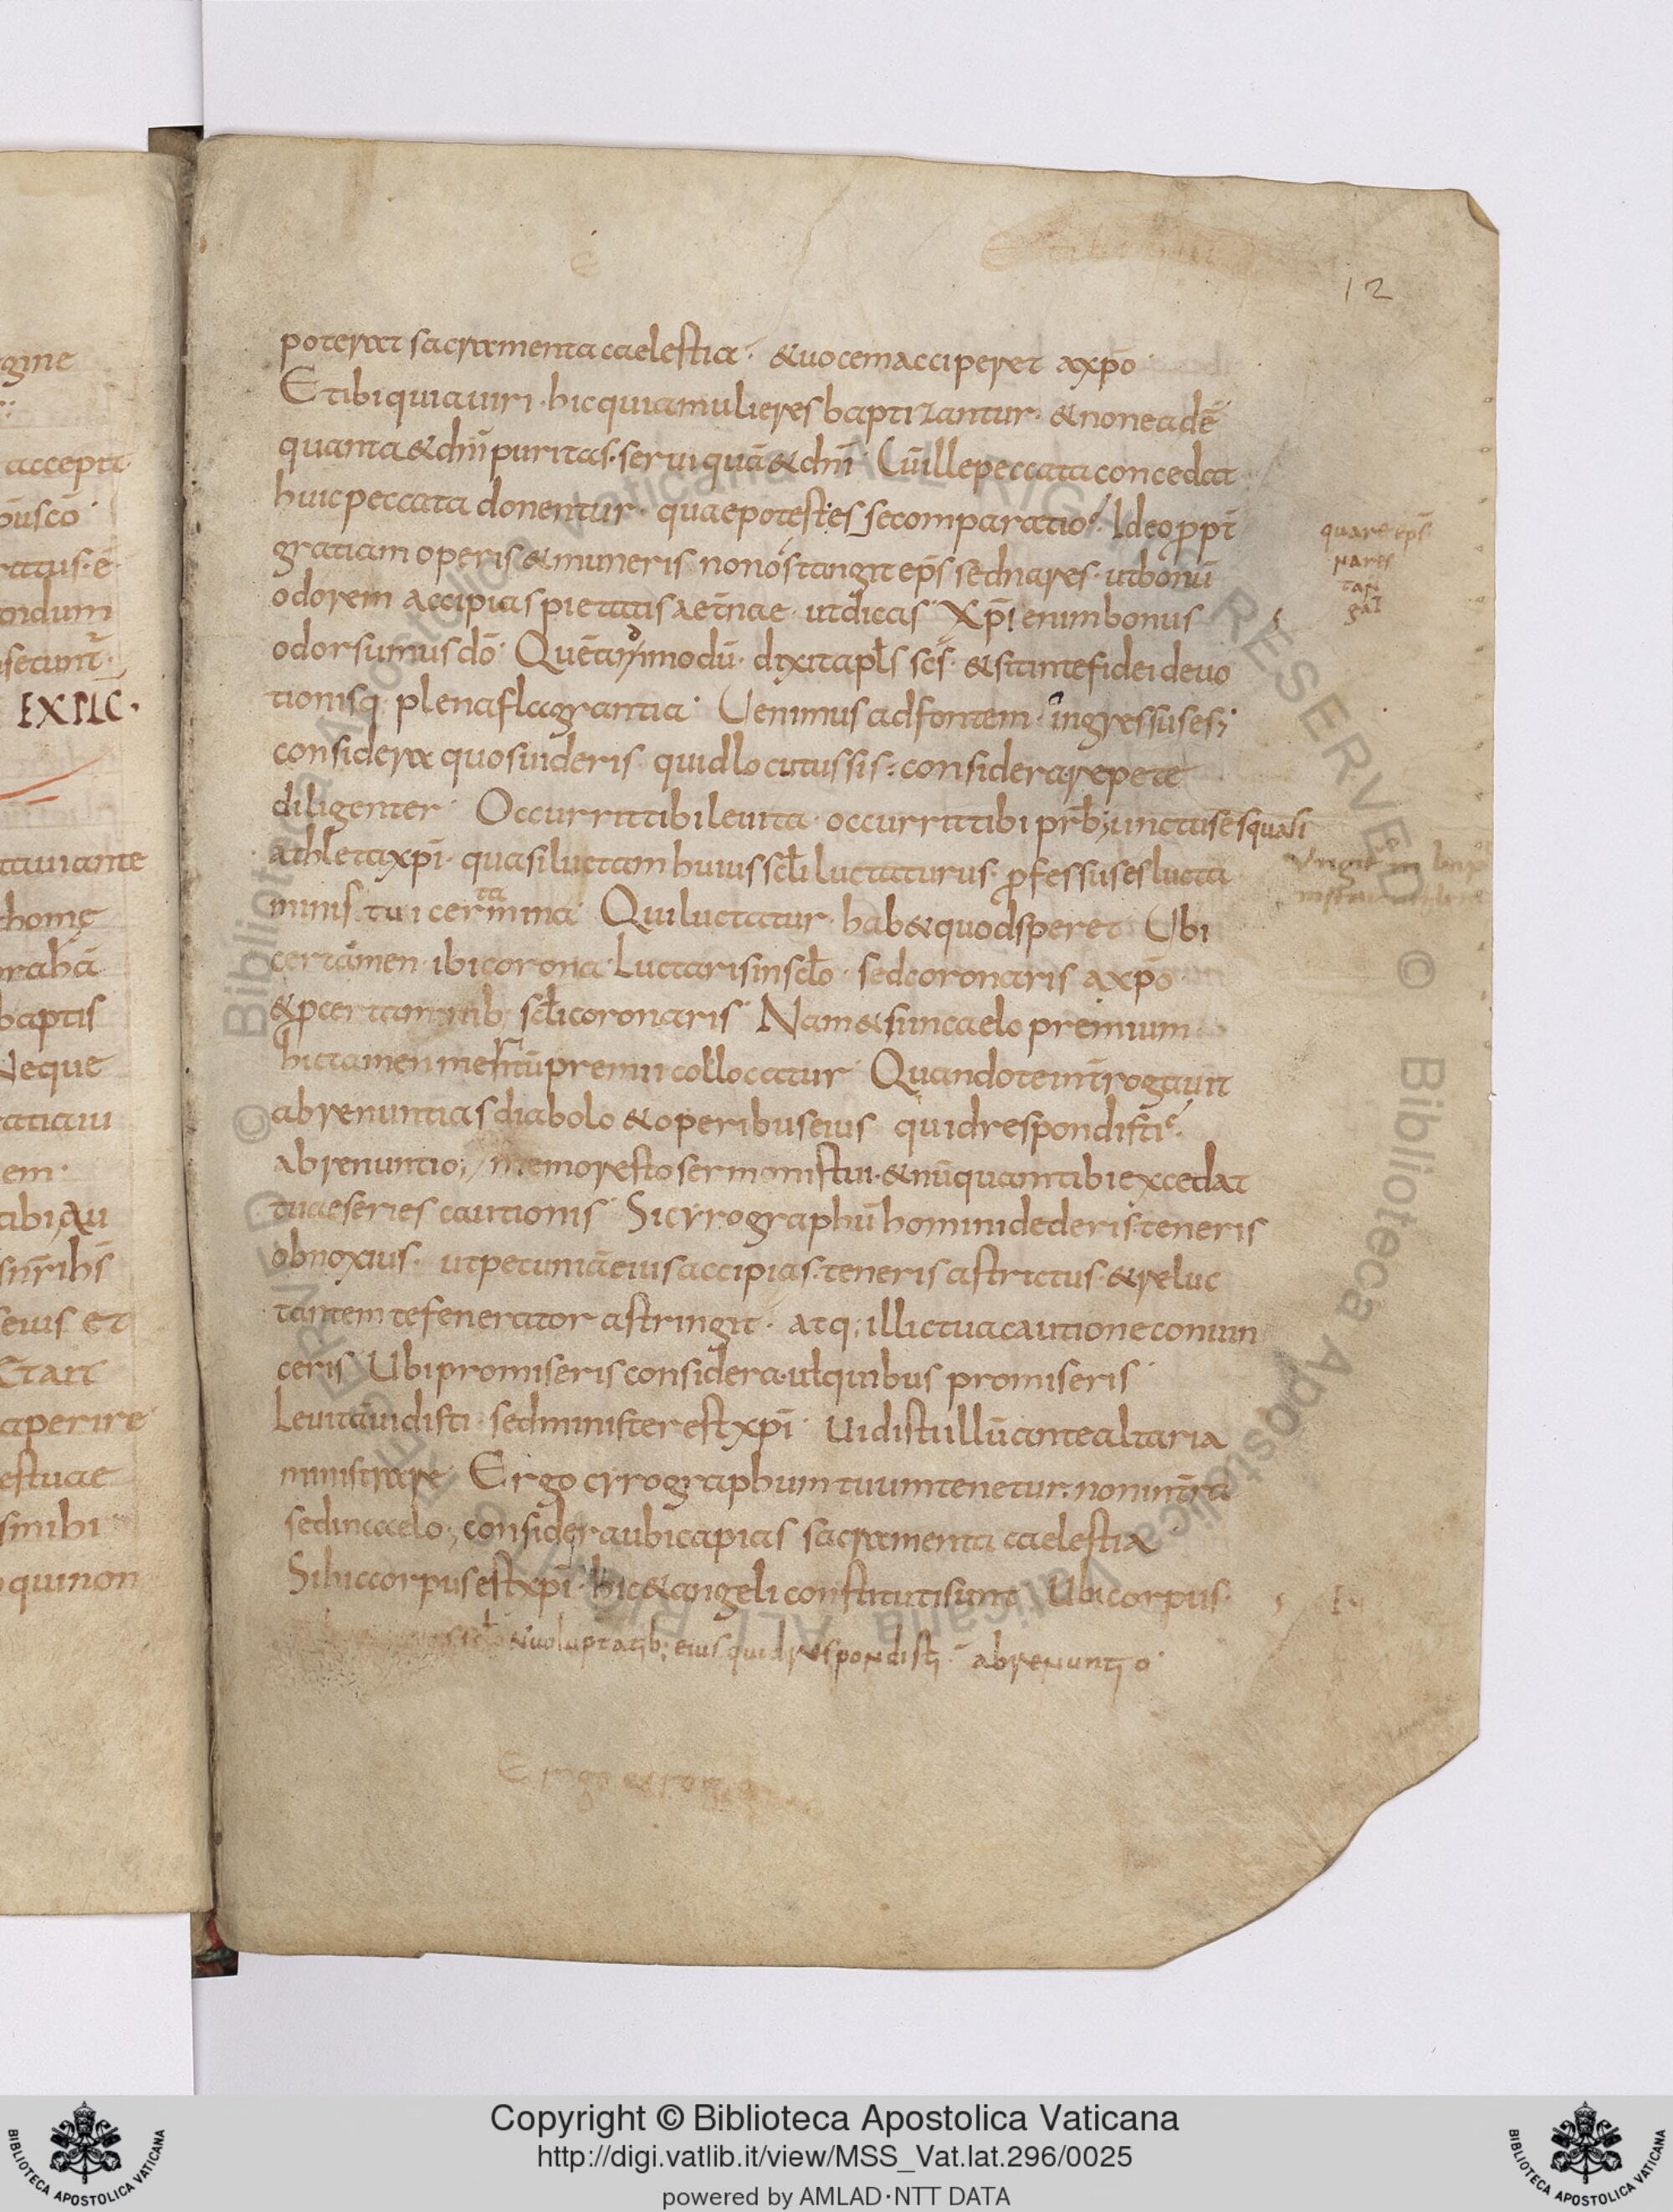 12
poterat sacramenta caelestia· & uocem acciperet a xp̄o
Et ibi quia uiri· hic quia mulieres baptizantur· & non eadē
quanta & dn̄i puritas· serui quā & dn̄i· Cū ille peccata concedat
huic peccata donentur· quae potest esse comparatio· Ideo ꝓpt̄
gratiam operis & muneris non os tangit ep̄s sed nares· ut bonū
odorem accipias pietatis aet̄nae· ut dicas· Xp̄i enim bonus
odor sumus dō· Quē modū· dixit apl̄s sc̄s· & sit in te fidei deuo
tionisq; plena flagrantia· Uenimus ad fontem· ingressus es;
considera quos uideris quid locutus sis· considera· repete
diligenter· Occurrit tibi leuita· occurrit tibi prb̄; unctus es quasi
athleta xp̄i· quasi luctam huius scl̄i luctaturus· ꝓfessus es lucta
minis tui certamina· Qui luctatur· hab& quod speret Ubi
certamen· ibi corona· Luctaris in scl̄o· sed coronaris a xp̄o
& ꝑ certaminib; scl̄i coronaris· Nam & si in caelo premium
hic tamen meritū premii collocatur· Quando te int̄rogauit
abrenuntias diabolo & operibus eius quid respondisti·
abrenuntio; memor esto sermonis tui· & nūquam tibi excedat
tuae series cautionis· Si cyrographū homini dederis· teneris
obnoxius· ut pecuniā eius accipias· teneris astrictus· & reluc
tantem te fenerator astringit· atq; illic tua cautione conuin
ceris· Ubi promiseris considera· ul̄ quibus promiseris·
Leuitā uidisti· sed minister est xp̄i· Uidisti illū ante altaria
ministrare· Ergo cyrographum tuum tenetur· non in t̄ra
sed in caelo; considera ubi capias sacramenta caelestia
Si hic corpus est xp̄i· hic & angeli constituti sunt Ubi corpus
& uoluptatib; eius quid respondisti abrenuntio·
quare ep̄s
nares
tan
git
gine
accepta
ratus· ē
ondum
EXPLC·
tauiante
home
baptis
Neque
em·
eius et
aperire
estuae
sinihi
qui non
Copyright © Biblioteca Apostolica Vaticana
http://digi.vatlib.it/view/MSS_Vat.lat.296/0025
powered by AMLAD·NTT DATA
BIBLIOTECA APOSTOLICA VATICANA
BIBLIOTECA APOSTOLICA VATICANA